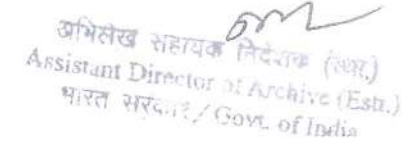 अभिलेख सहायक निदेशक (स्था.)
Assistant Director of Archive (Estt.)
भारत सरकार / Govt. of India